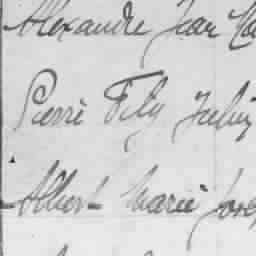 Alexandre Jean
Pierre Fély
Albert Marie Jose